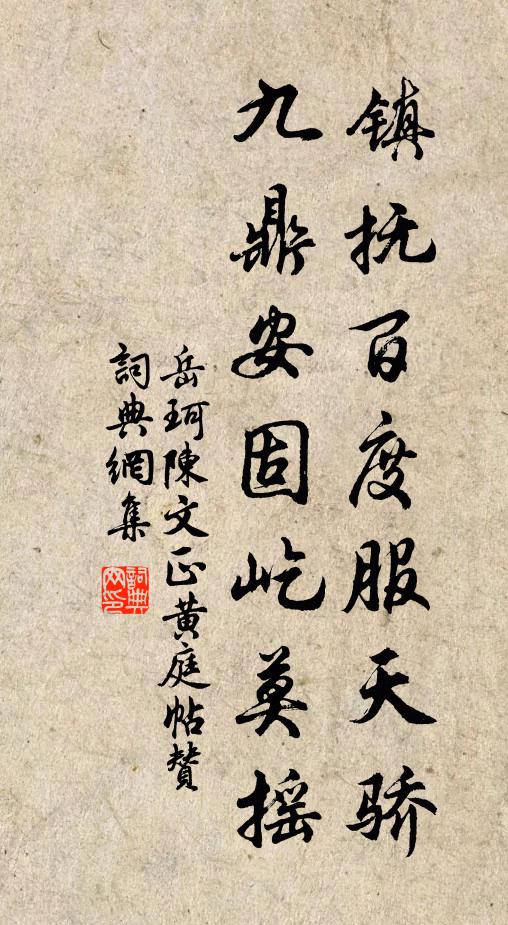 镇抚百度服天骄
九鼎安固屹莫摇
岳珂陳文正黄庭帖贊
詞典網集
詞典
网印